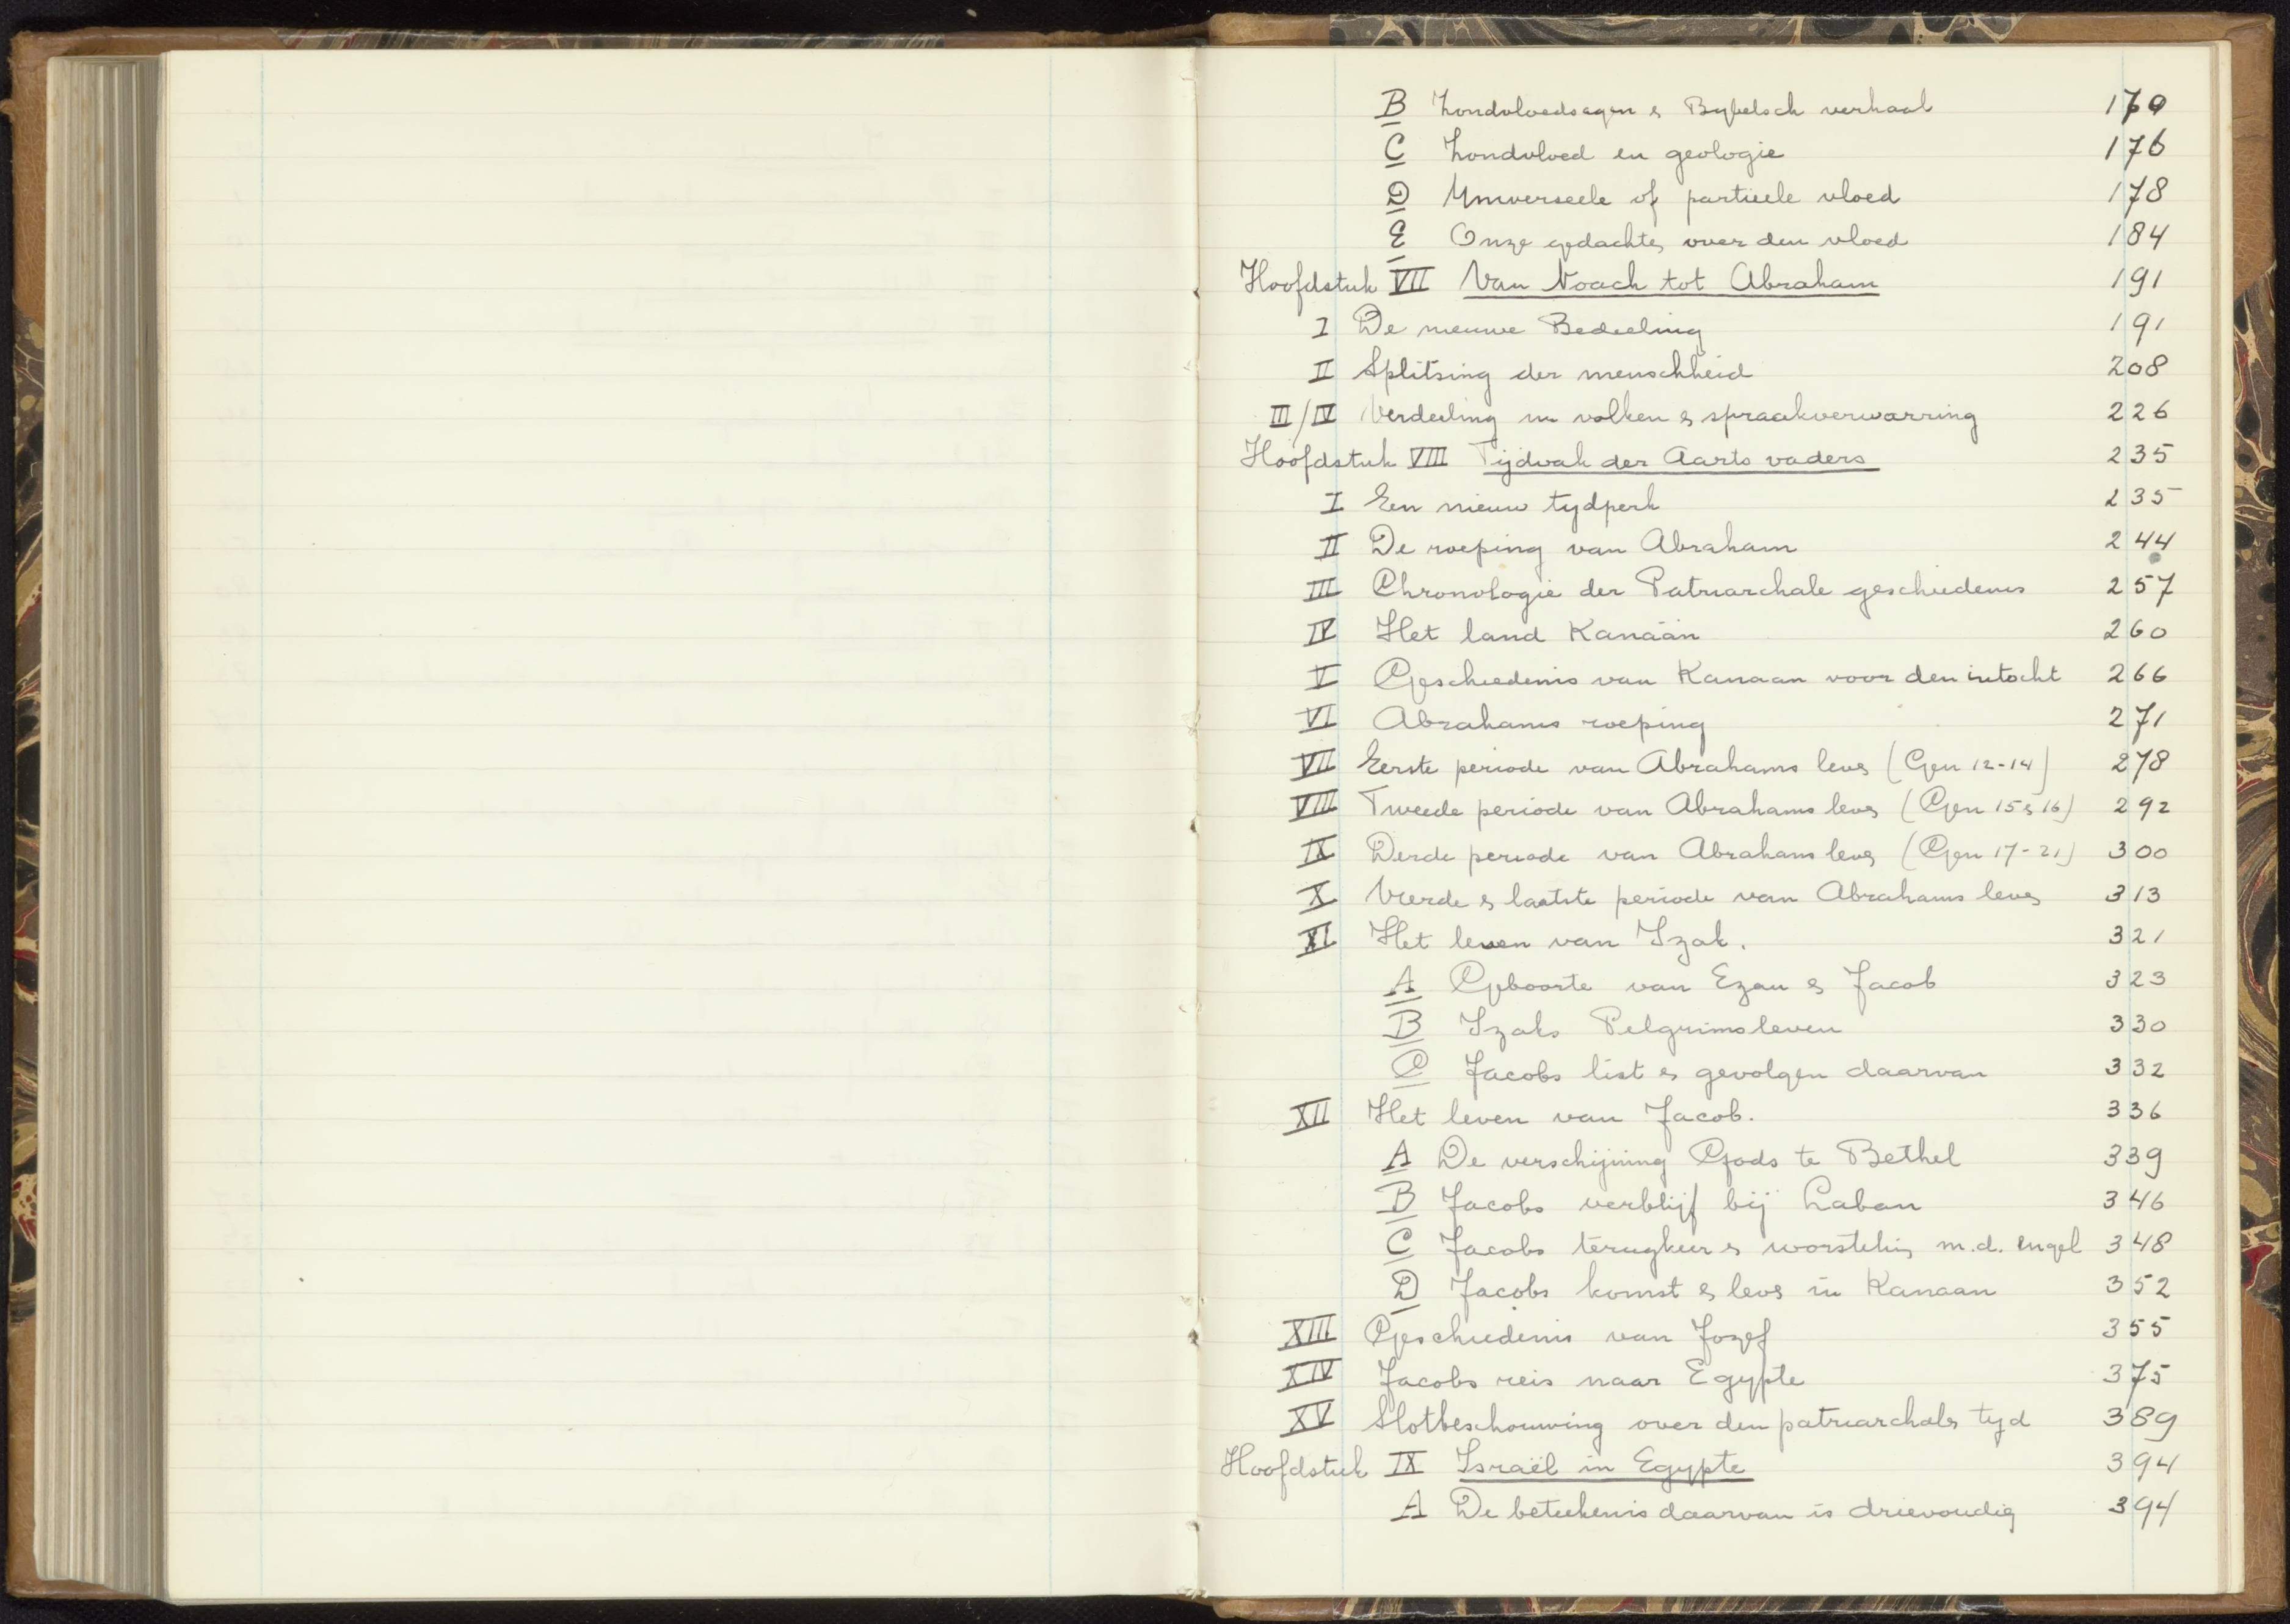 B Zondvloedsagen & Bybelsch verhaal 170
C Zondvloed en geologie 176
D Universeele of partieele vloed 178
E Onze gedachte over den vloed 184
Hoofdstuk VII Van Noach tot Abraham 191
I De nieuwe Bedeeling 191
II Splitsing der menschheid 208
III/IV Verdeeling in volken & spraakverwarring 226
Hoofdstuk VIII Tijdvak der Aartsvaders 235
I Een nieuw tydperk 235
II De roeping van Abraham 244
III Chronologie der Patriarchale geschiedenis 257
IV Het land Kanaän 260
V Geschiedenis van Kanaan voor den intocht 266
VI Abrahams roeping 271
VII Eerste periode van Abrahams leven (Gen 12-14) 278
VIII Tweede periode van Abrahams leven (Gen 15 & 16) 292
IX Derde periode van Abrahams leven (Gen 17-21) 300
X Vierde & laatste periode van Abrahams leven 313
XI Het leven van Izak. 321
A Geboorte van Ezau & Jacob 323
B Izaks Pelgrimsleven 330
C Jacobs list & gevolgen daarvan 332
XII Het leven van Jacob. 336
A De verschijning Gods te Bethel 339
B Jacobs verblijf bij Laban 346
C Jacobs terugkeer & worsteling m.d. engel 348
D Jacobs komst & leven in Kanaan 352
XIII Geschiedenis van Jozef 355
XIV Jacobs reis naar Egypte 375
XV Slotbeschouwing over den patriarchalen tyd 389
Hoofdstuk IX Israël in Egypte 394
A De beteekenis daarvan is drievoudig 394